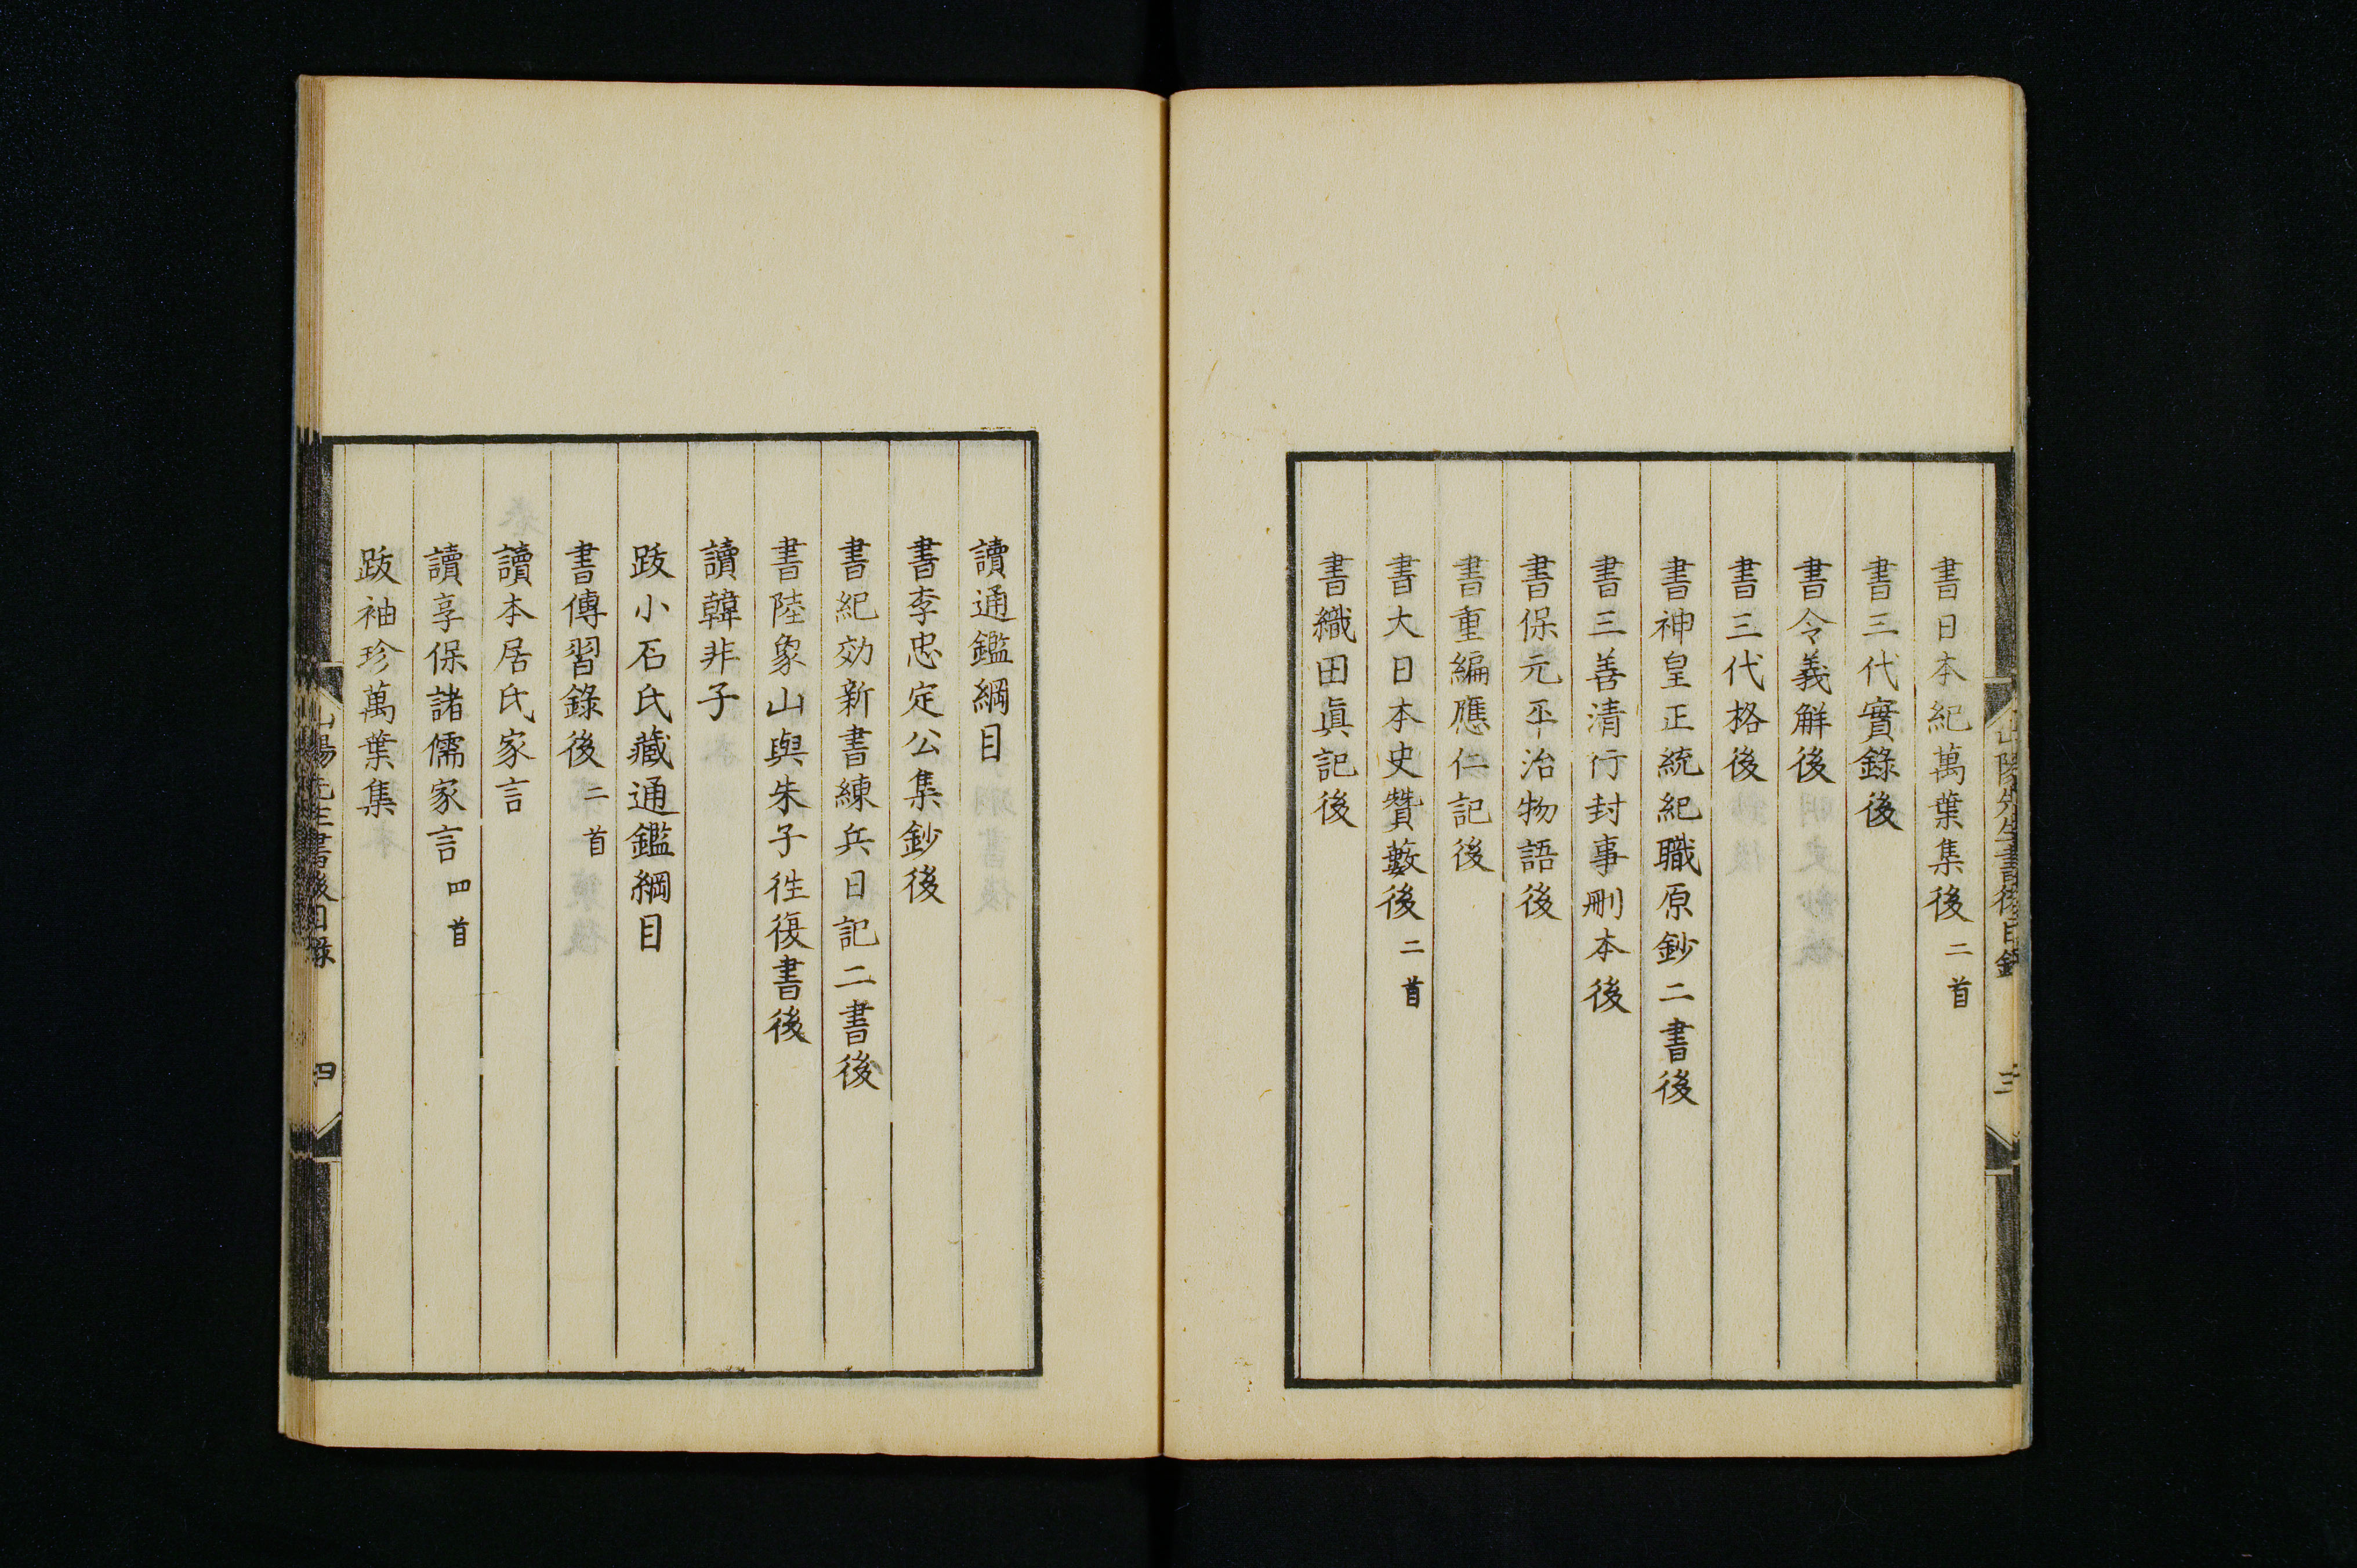 書日本紀萬葉集後 二首
書三代實錄後
書令義解後
書三代格後
書神皇正統紀職原鈔二書後
書三善清行封事刪本後
書保元平治物語後
書重編應仁記後
書大日本史贊藪後 二首
書織田眞記後
山陽先生書後目錄 三
讀通鑑綱目
書李忠定公集鈔後
書紀効新書練兵日記二書後
書陸象山與朱子往復書後
讀韓非子
跋小石氏藏通鑑綱目
書傳習錄後 二首
讀本居氏家言
讀享保諸儒家言 四首
跋袖珍萬葉集
山陽先生書後目錄 四